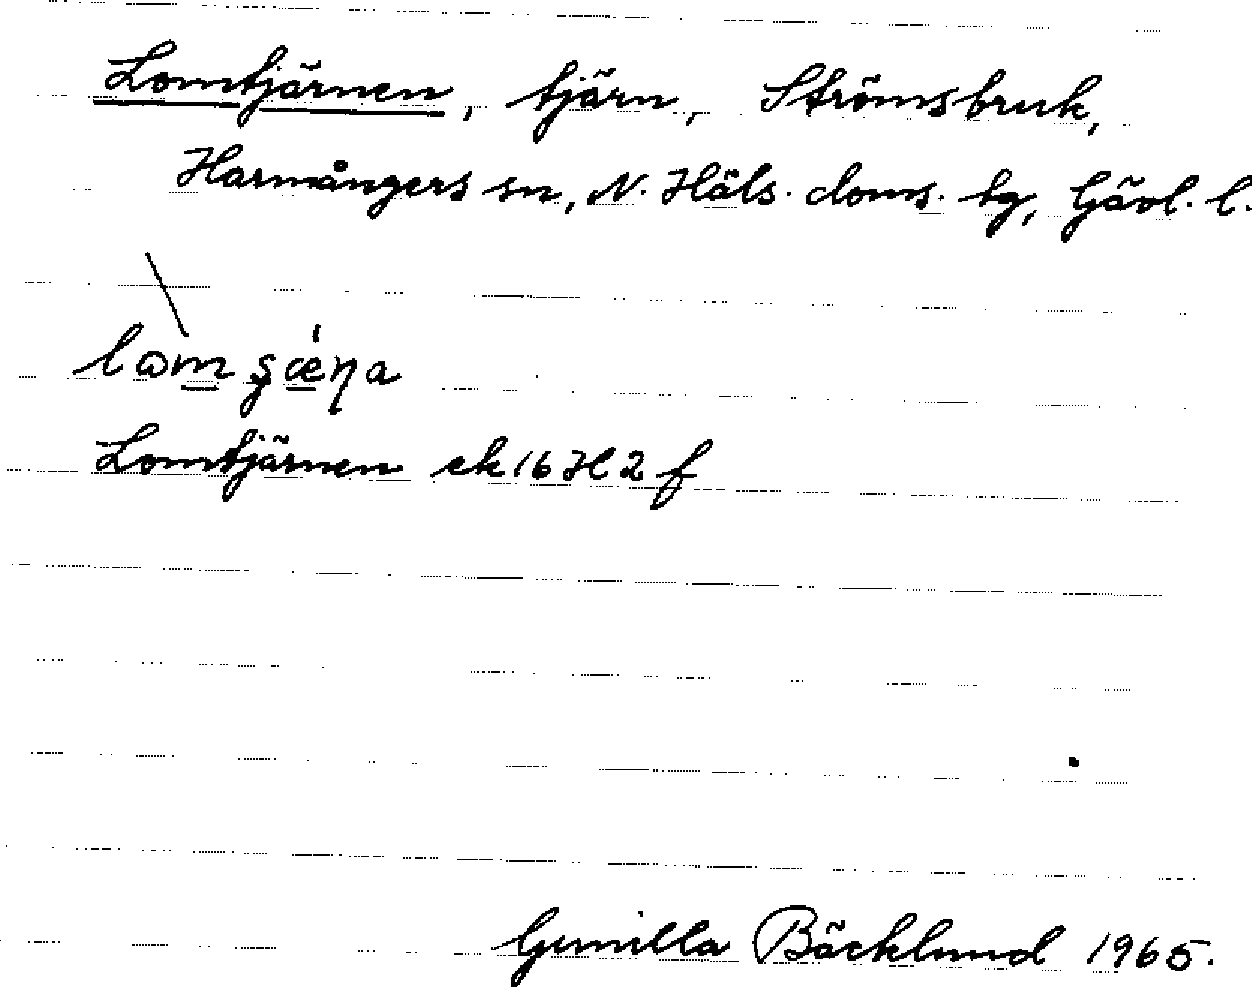 Lomtjärnen, tjärn, Strömsbruk,
Harmångers sn, N. Häls. doms. tg, Gävl. l.
Lomtjärnen ek 16 H 2 f
Gunilla Bäcklund 1965.